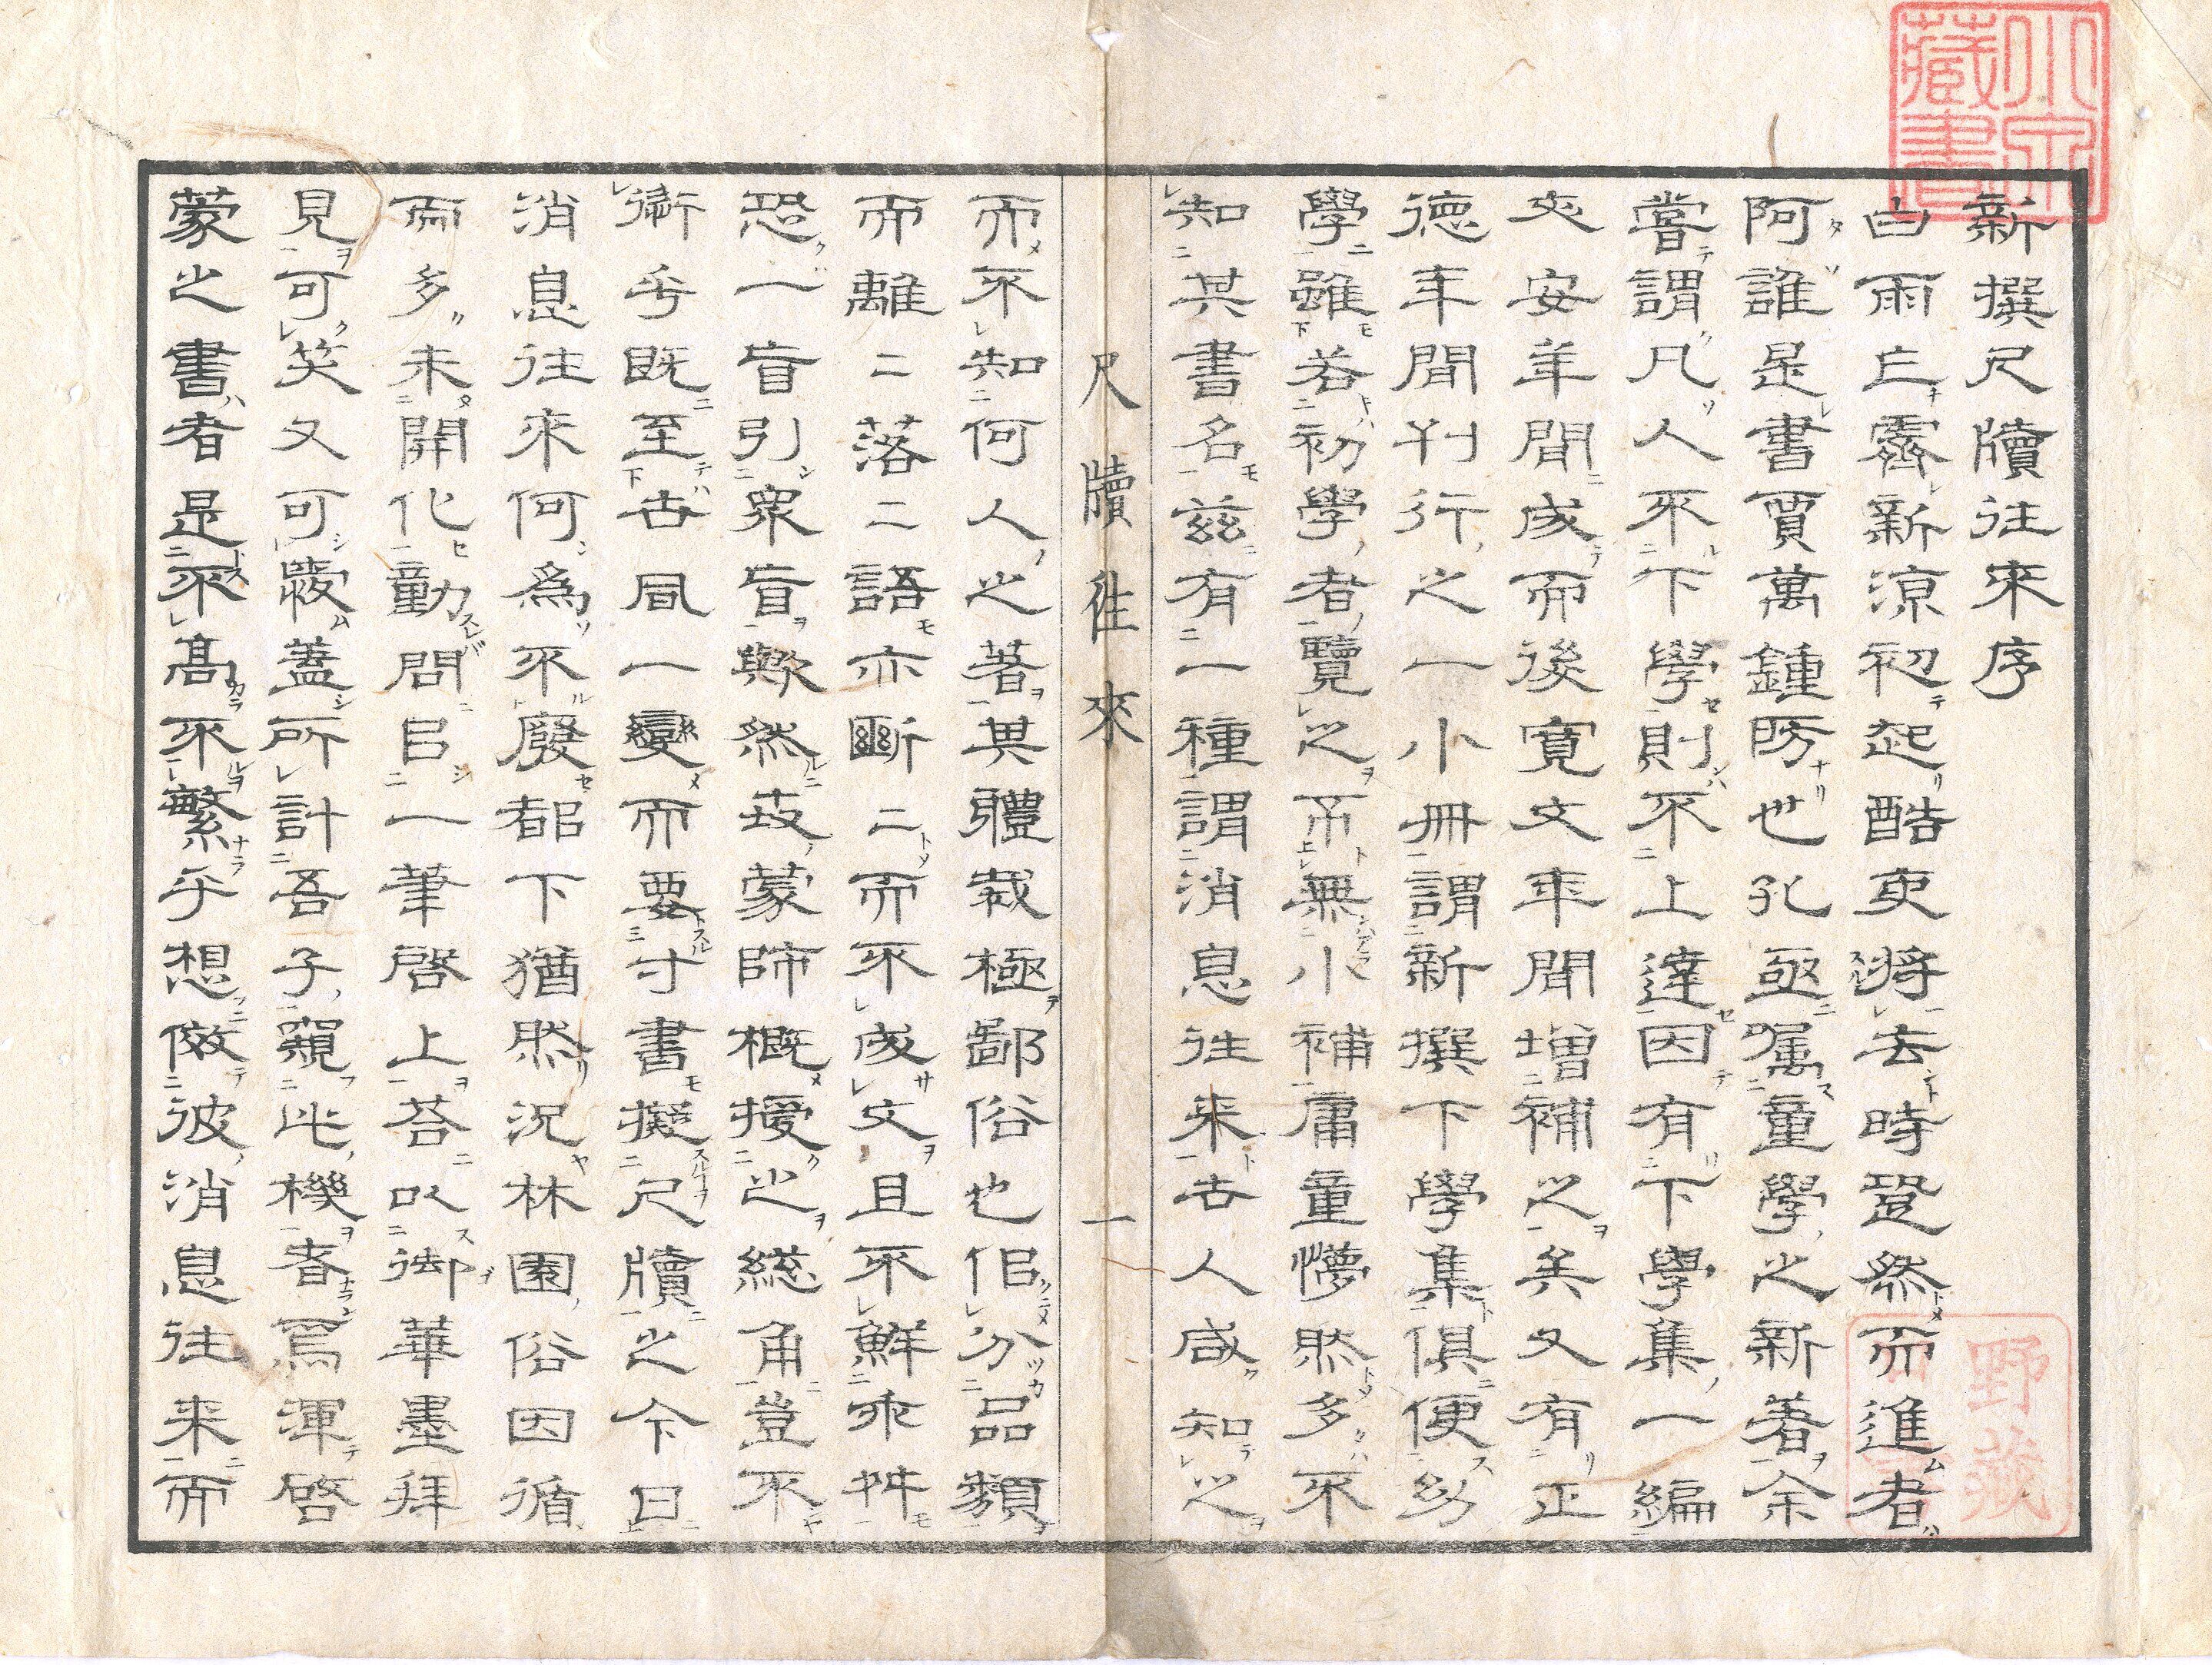 新撰尺牘往來序
白雨亡霽新涼初起酷吏將去時跫然而進者
阿誰是書賈萬鍾防也孔亟嘱童學之新著余
嘗謂凡人不下學則不上達因有下學集一編
文安年間成而後寛文年間増補之矣又有正
徳年間刊行之一小冊謂新撰下學集俱便幼
學雖若初學者覽之不無小補庸童懵然多不
知其書名茲有一種謂消息往来古人咸知之
尺牘往來 一
而不知何人之著其體裁極鄙俗也但分品類
而離二落二語亦斷二而不成文且不鮮乖舛
恐一盲引衆盲歟然荍蒙師概授之総角豈不
術乎既至古風一變而要寸書擬尺牘之今日
消息往來何爲不廢都下猶然況林園俗因循
而多未開化動問㠯一筆啓上荅以御華墨拜
見可笑又可歎蓋所計吾子窺此機者爲渾啓
蒙之書者是不高不繁乎想倣彼消息往来而
小宗藏書
野藏